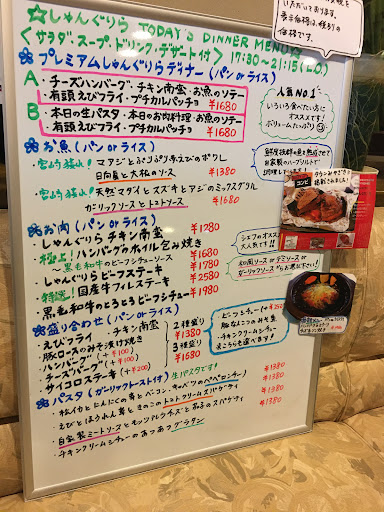 ☆しゃんぐりら TODAY'S DINNER MENU☆
<サラダ・スープ・ドリンク・デザート付> 17:30〜21:15(L.O.)
いただいております。
表示価格は、税別りの
価格です。
プレミアムしゃんぐりらディナー(パン or ライス)
A・チーズハンバーグ・チキン南蛮・お魚のソテー
・有頭えびフライ・プチカルパッチョ ¥1680
B・本日の生パスタ・本日のお肉料理・お魚のソテー
・有頭えびフライ・プチカルパッチョ ¥1680
人気NO.1
いろいろ食べたい方に
オススメです!
ボリュームたっぷり
お魚(パン or ライス)
宮崎揚り! マアジとぷりぷり手えびのポワレ
日向夏と大根のソース ¥1380
宮崎揚り! 天然マダイとスズキとアジのミックスグリル
ガーリックソースとトマトソース ¥1680
鮮度抜群の魚を熟成させて
自家製のハーブソルトで
調理しています!
コンビ
お肉(パン or ライス)
・しゃんぐりらチキン南蛮 ¥1280
・極上!ハンバーグのホイル包み焼き ¥1680
〜黒毛和牛のビーフシチューソース
・しゃんぐりらビーフステーキ ¥1780
・特選!国産牛フィレステーキ ¥2580
・黒毛和牛のとろとろビーフシチュー ¥1980
シェフのオススメ
大人気です!!
和風ソース or デミソース or
ガーリックソースからお選び下さい!
盛り合わせ(パン or ライス)
・えびフライ ・チキン南蛮
・豚ロースのみそ漬け焼き
・ハンバーグ(+¥100)
・チーズバーグ(+¥100)
・サイコロステーキ(+¥200)
2種盛り ¥1380
3種盛り ¥1680
ビーフシチュー(+¥250)
チキンクリームシチュー
もこちらも選べます!
パスタ(ガーリックトースト付) 生パスタです!
・松イカとにんにくの芽とベーコン、キャベツのペペロンチーノ ¥1380
・えびとほうれん草ときのこのトマトクリームスパゲティ ¥1380
・自家製ミートソースとモッツァレラチーズと茄子のスパゲティ ¥1380
・チキンクリームシチューのあつあつグラタン ¥1380